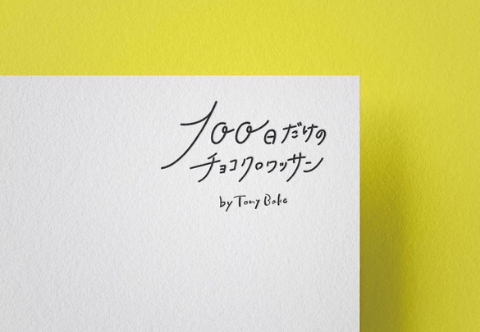 100日だけの
チョコクロワッサン
by Tony Bake